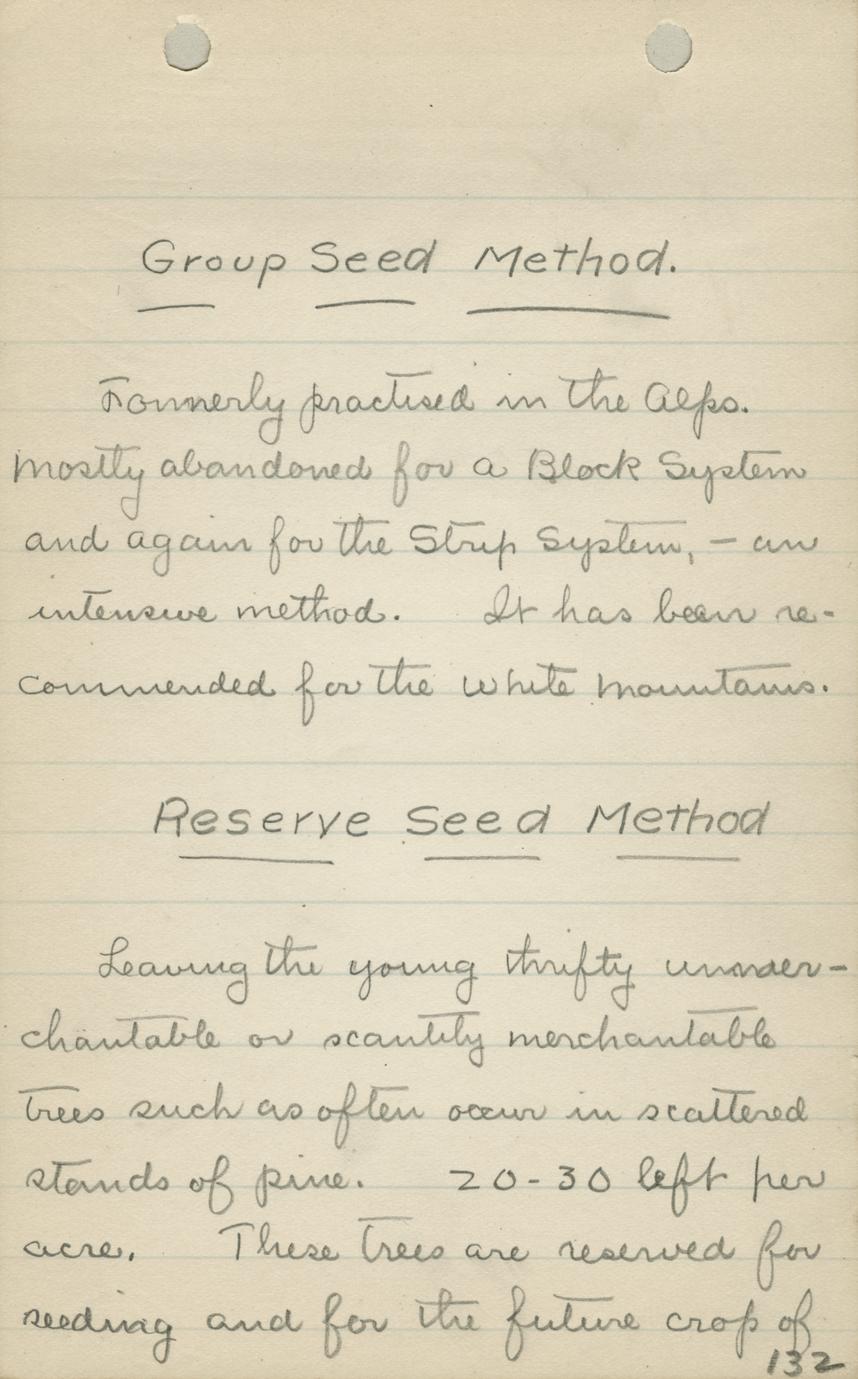 Group Seed Method.
Formerly practised in the Alps.
Mostly abandoned for a Block System
and again for the Strip System, - an
intensive method. It has been re-
commended for the White Mountains.
Reserve Seed Method
Leaving the young thrifty unmer-
chantable or scantily merchantable
trees such as often occur in scattered
stands of pine. 20-30 left per
acre. These trees are reserved for
seeding and for the future crop of
132